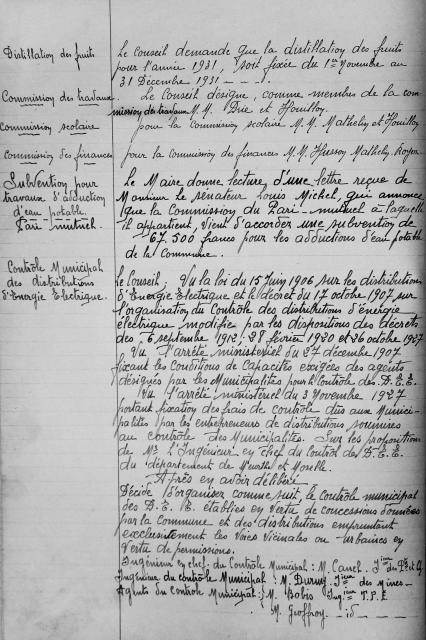 Distillation des fruits
Le Conseil demande que la distillation des fruits
pour l'année 1931, soit fixée du 1er Novembre au
31 Décembre 1931 - - - .
Commission des travaux.
Le Conseil désigne, comme membres de la com-
mission des travaux M.M. Brie et Houillon
Commission scolaire
pour la commission scolaire M.M. Mathelin et Houillon
Commission des finances
pour la commission des finances M.M. Husson Mathelin Royer
Subvention pour
travaux d'adduction
d'eau potable.
Pari-mutuel.
Le Maire donne lecture d'une lettre reçue de
Monsieur le Sénateur Louis Michel, qui annonce
que la Commission du Pari-mutuel à laquelle
il appartient, vient d'accorder une subvention de
67.500 francs pour les adductions d'eau potable
de la Commune.
Contrôle Municipal
des distributions
d'Energie Electrique.
Le Conseil; Vu la loi du 15 Juin 1906 sur les distributions
d'Energie Electrique et le décret du 17 octobre 1907 sur
l'organisation du Contrôle des distributions d'énergie
électrique modifié par les dispositions des décrets
des, 6 septembre 1912, 28 février 1920 et 26 octobre 1927
Vu l'arrêté ministériel du 27 décembre 1907
fixant les conditions de Capacités exigées des agents
désignés par les Municipalités pour le Contrôle des D.E.E.
Vu l'arrêté ministériel du 3 Novembre 1927
portant fixation des frais de contrôle dûs aux Munici-
palités par les entrepreneurs de distributions, soumises
au contrôle des Municipalités. Sur les propositions
de Mr L'Ingénieur en chef du Control des D.E.E.
du département de Meurthe et Moselle.
Après en avoir délibéré
Décide d'organiser comme suit, le contrôle municipal
des D.E.E. établies en vertu de concessions données
par la Commune et des distributions empruntant
exclusivement les Voies Vicinales ou urbaines en
Vertu de permissions.
Ingénieur en chef du Contrôle Municipal: M. Ing. des Pts et
Ingénieur du contrôle Municipal: M. Durup des Mines -
Agents du Contrôle Municipal: M. Bobis Ing. T.P.E
M. Geoffroy - id -